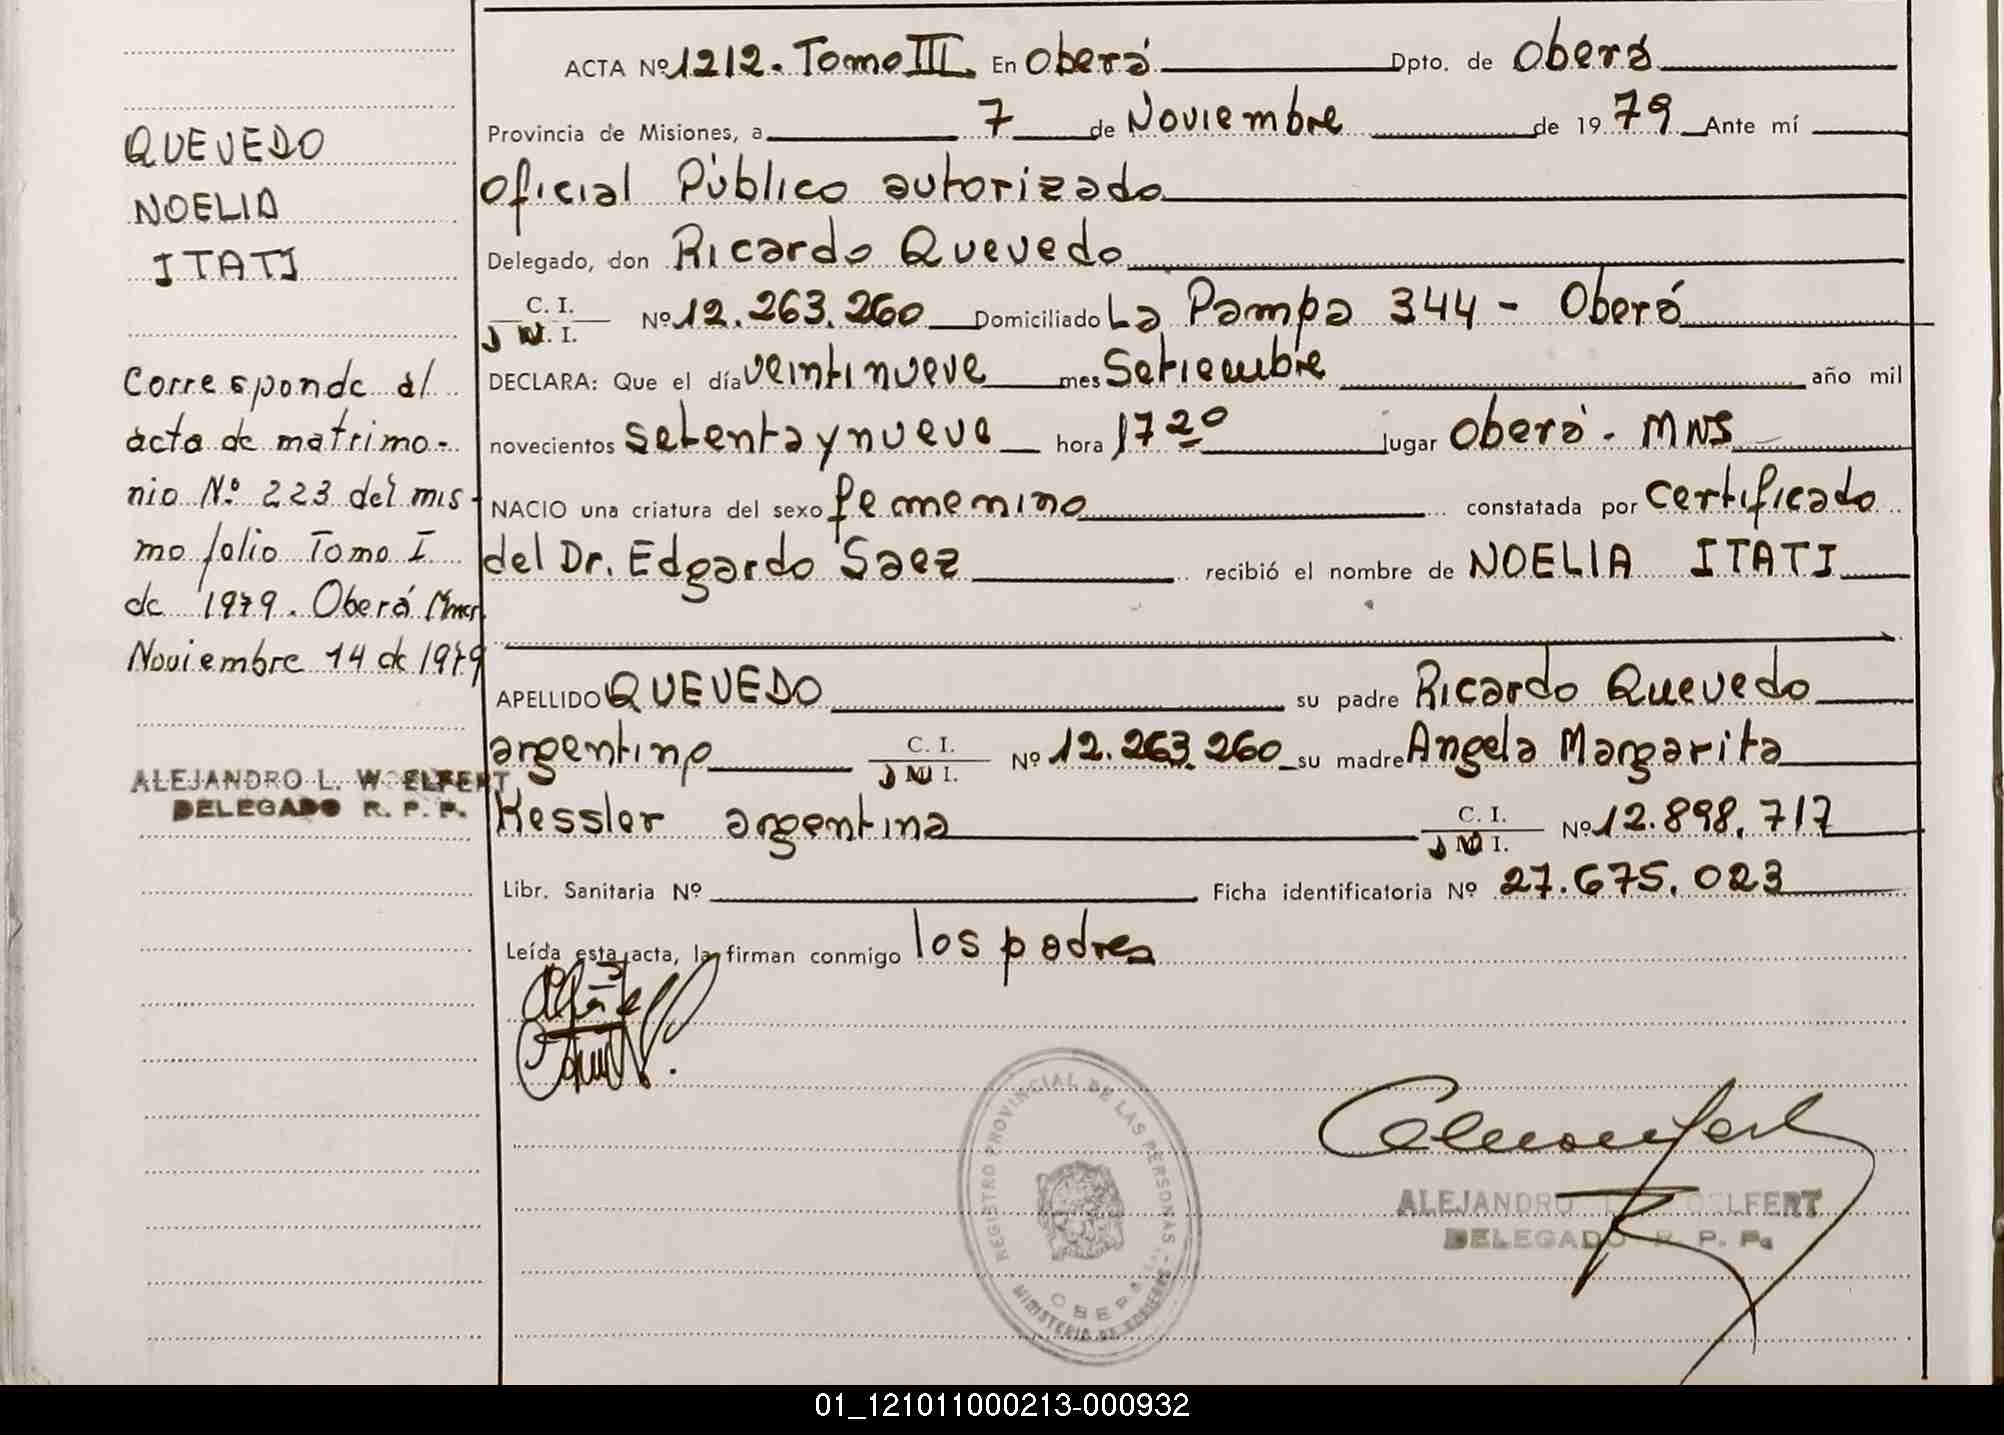 QUEVEDO
NOELIA
ITATI
Corresponde al
acta de matrimo-
nio Nº 223 del mis-
mo folio Tomo I
de 1979. Oberá Mnes
Noviembre 14 de 1979
ALEJANDRO L. WOELFERT
DELEGADO R. P. P.
ACTA Nº 1212. Tomo III. En Oberá Dpto. de Oberá
Provincia de Misiones, a 7 de Noviembre de 1979 Ante mí
Oficial Público autorizado
Delegado, don Ricardo Quevedo
C. I.
D N. I. Nº 12.263.260 Domiciliado La Pampa 344 - Oberá
DECLARA: Que el día veintinueve mes Setiembre año mil
novecientos setenta y nueve hora 17 20 lugar Oberá - MNS
NACIO una criatura del sexo femenino constatada por certificado
del Dr. Edgardo Saez recibió el nombre de NOELIA ITATI
APELLIDO QUEVEDO su padre Ricardo Quevedo
argentino C. I. D N I. Nº 12.263.260 su madre Angela Margarita
Kessler argentina C. I. D N I. Nº 12.898.717
Libr. Sanitaria Nº Ficha identificatoria Nº 27.675.023
Leída esta acta, la firman conmigo los padres
REGISTRO PROVINCIAL DE LAS PERSONAS
OBERA
MINISTERIO DE GOBIERNO
ALEJANDRO L. WOELFERT
DELEGADO R. P. P.
01_121011000213-000932